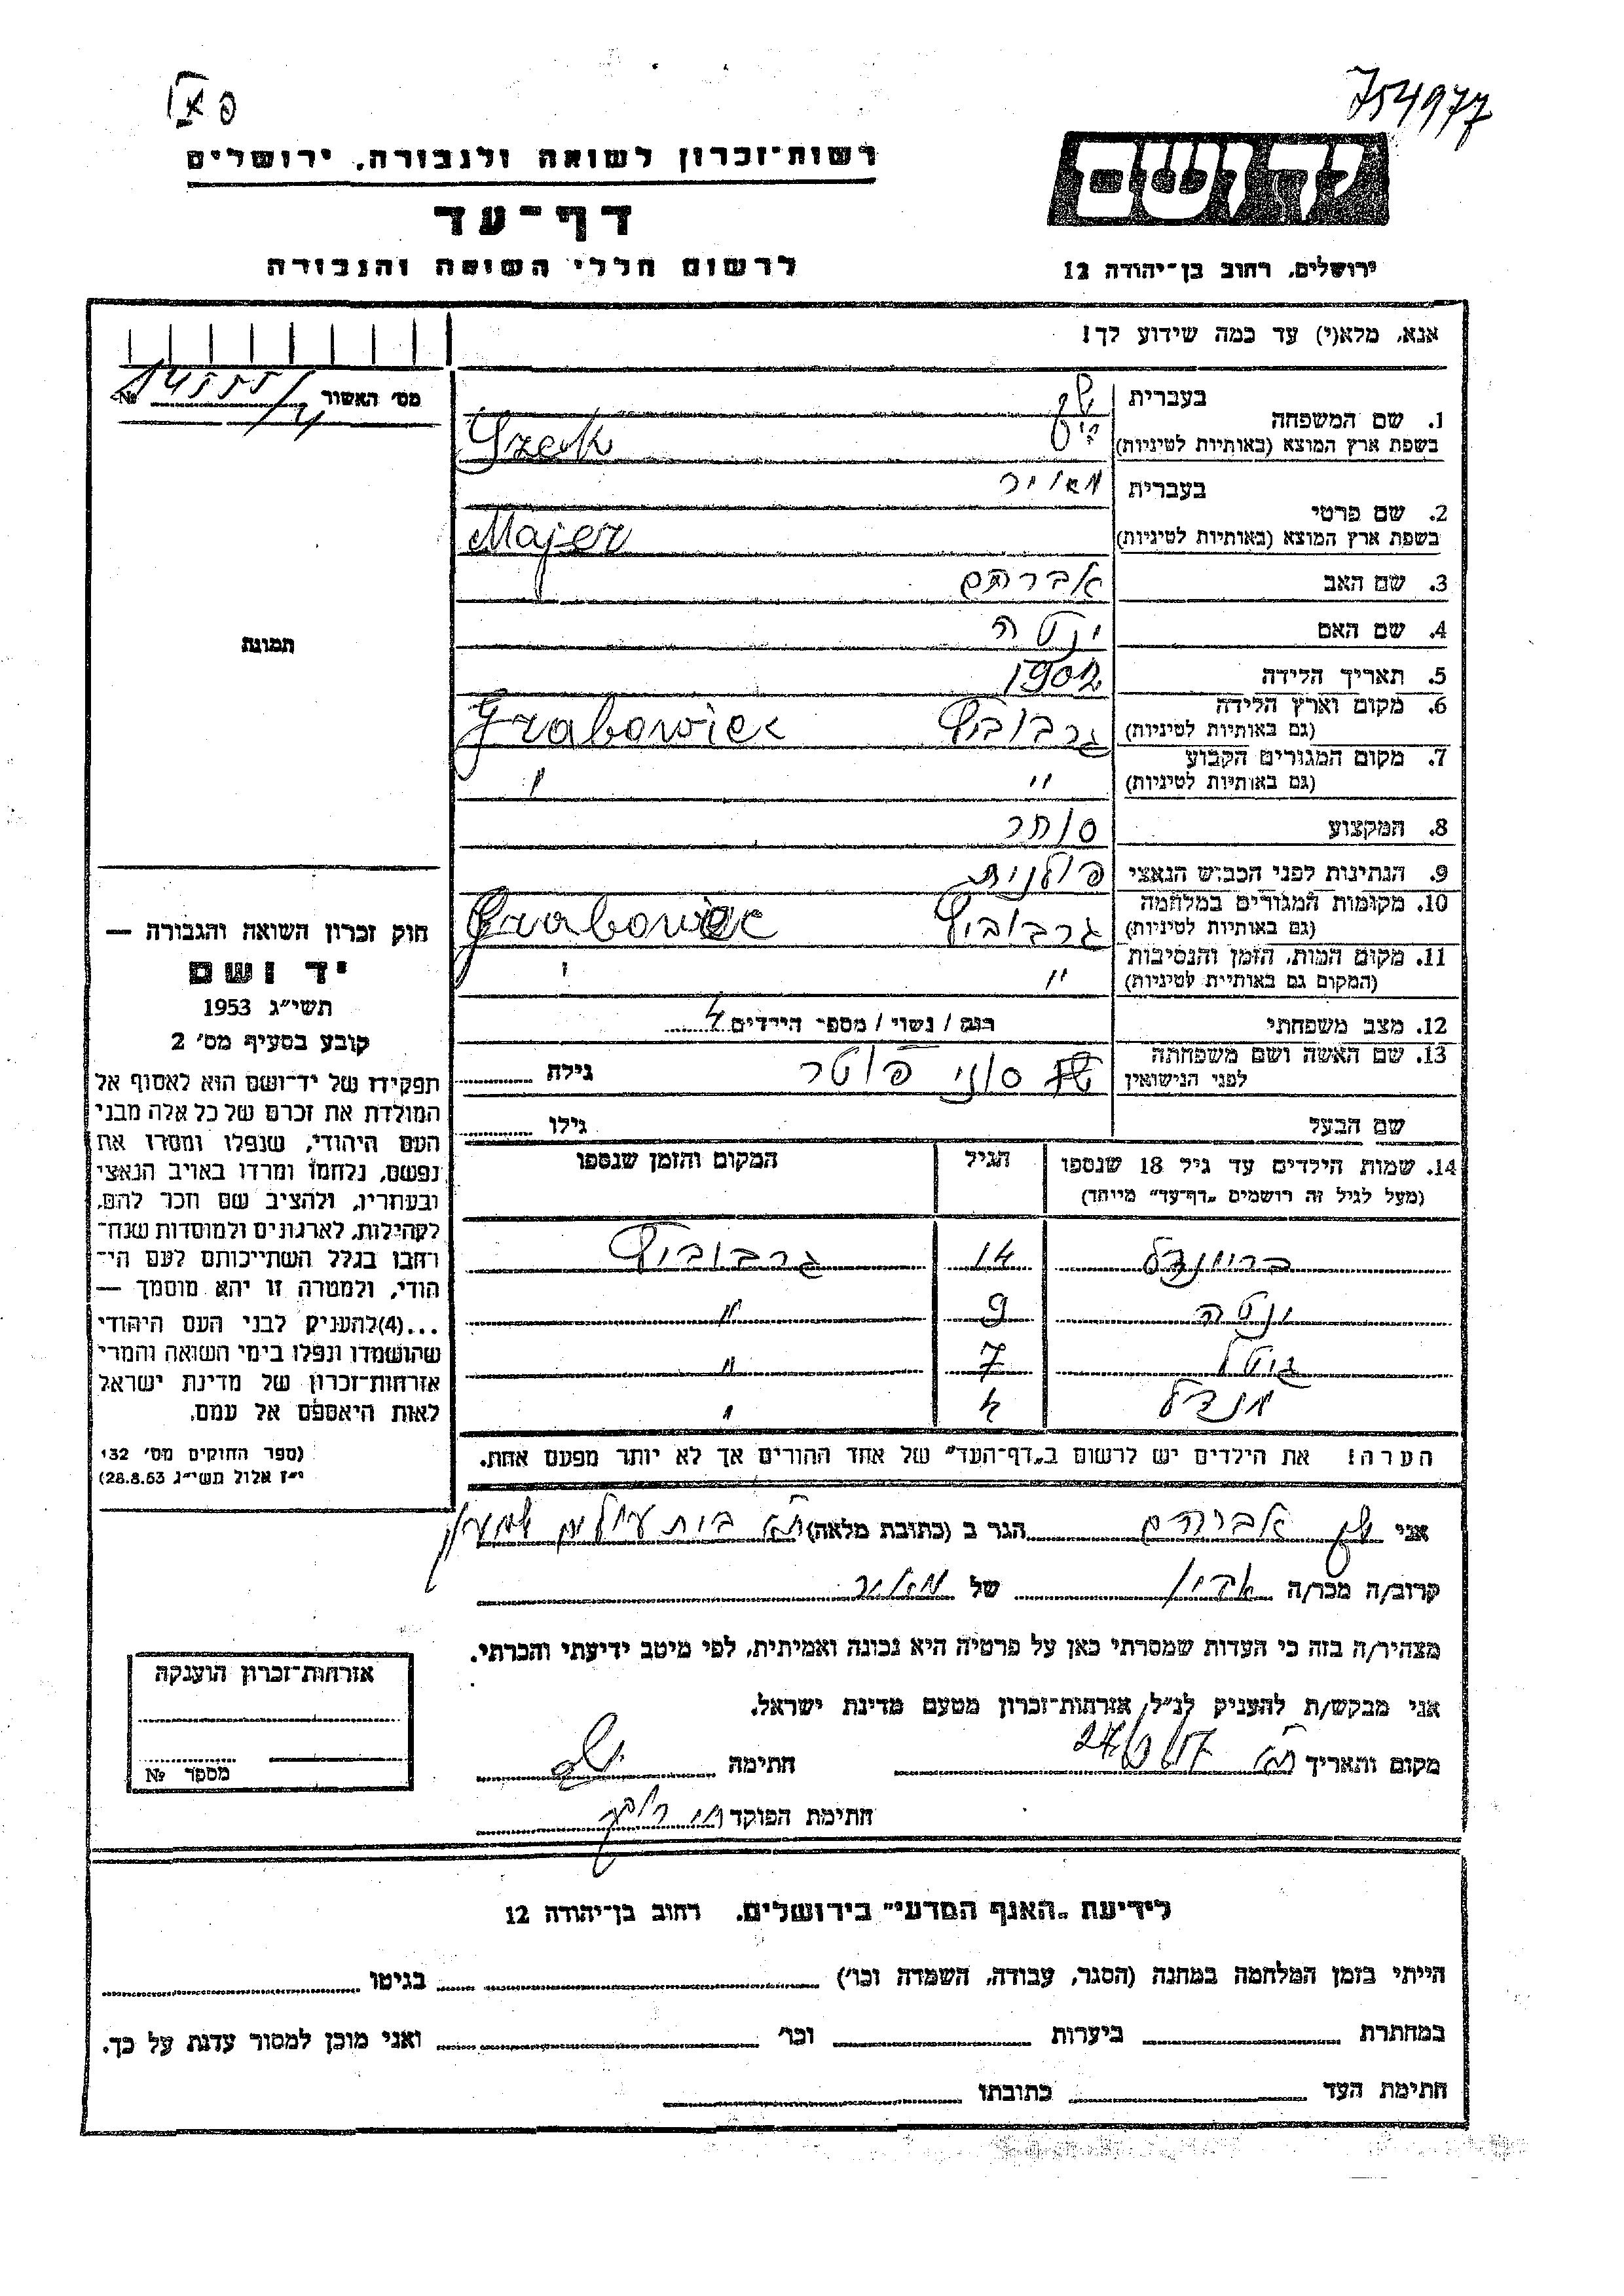 754977
רשות־זכרון לשואה ולגבורה, ירושלים
יד ושם
דף־עד
לרשום חללי השואה והגבורה
ירושלים, רחוב בן־יהודה 12
אנא, מלא(י) עד כמה שידוע לך!
מס׳ האשור №
1. שם המשפחה
בעברית
בשפת ארץ המוצא (באותיות לטיניות)
2. שם פרטי
בעברית מאיר
בשפת ארץ המוצא (באותיות לטיניות) Majer
3. שם האב אברהם
4. שם האם יטה
5. תאריך הלידה 1902
6. מקום וארץ הלידה
(גם באותיות לטיניות) גרבוביץ Grabowiec
7. מקום המגורים הקבוע
(גם באותיות לטיניות) " "
8. המקצוע סוחר
9. הנתינות לפני הכבוש הנאצי פולנית
10. מקומות המגורים במלחמה
(גם באותיות לטיניות) גרבוביץ Grabowiec
11. מקום המות, הזמן והנסיבות
(המקום גם באותיות לטיניות) " "
12. מצב משפחתי רווק / נשוי / מספר הילדים 4
13. שם האשה ושם משפחתה
לפני הנישואין גילה
שם הבעל גילו
14. שמות הילדים עד גיל 18 שנספו
(מעל לגיל זה רושמים „דף־עד״ מיוחד)
הגיל
המקום והזמן שנספו
14 גרבוביץ
יטה 9 "
7 "
מנדל 4 "
הערה! את הילדים יש לרשום ב„דף־העד״ של אחד ההורים אך לא יותר מפעם אחת.
תמונה
חוק זכרון השואה והגבורה —
יד ושם
תשי״ג 1953
קובע בסעיף מס׳ 2
תפקידו של יד־ושם הוא לאסוף אל
המולדת את זכרם של כל אלה מבני
העם היהודי, שנפלו ומסרו את
נפשם, נלחמו ומרדו באויב הנאצי
ובעוזריו, ולהציב שם וזכר להם,
לקהילות, לארגונים ולמוסדות שנח־
רבו בגלל השתייכותם לעם הי־
הודי, ולמטרה זו יהא מוסמך —
...(4)להעניק לבני העם היהודי
שהושמדו ונפלו בימי השואה והמרי
אזרחות־זכרון של מדינת ישראל
לאות היאספם אל עמם.
(ספר החוקים מס׳ 132
י״ז אלול תשי״ג 28.8.53)
אני אברהם הגר ב (כתובת מלאה)
קרוב/ה מכר/ה של מאיר
מצהיר/ה בזה כי העדות שמסרתי כאן על פרטיה היא נכונה ואמיתית, לפי מיטב ידיעתי והכרתי.
אני מבקש/ת להעניק לנ״ל, אזרחות־זכרון מטעם מדינת ישראל.
מקום ותאריך חתימה
חתימת הפוקד
אזרחות־זכרון הוענקה
מספר №
לידיעת „האגף המדעי״ בירושלים, רחוב בן־יהודה 12
הייתי בזמן המלחמה במחנה (הסגר, עבודה, השמדה וכו׳) בגיטו
במחתרת ביערות וכו׳ ואני מוכן למסור עדות על כך.
חתימת העד כתובתו